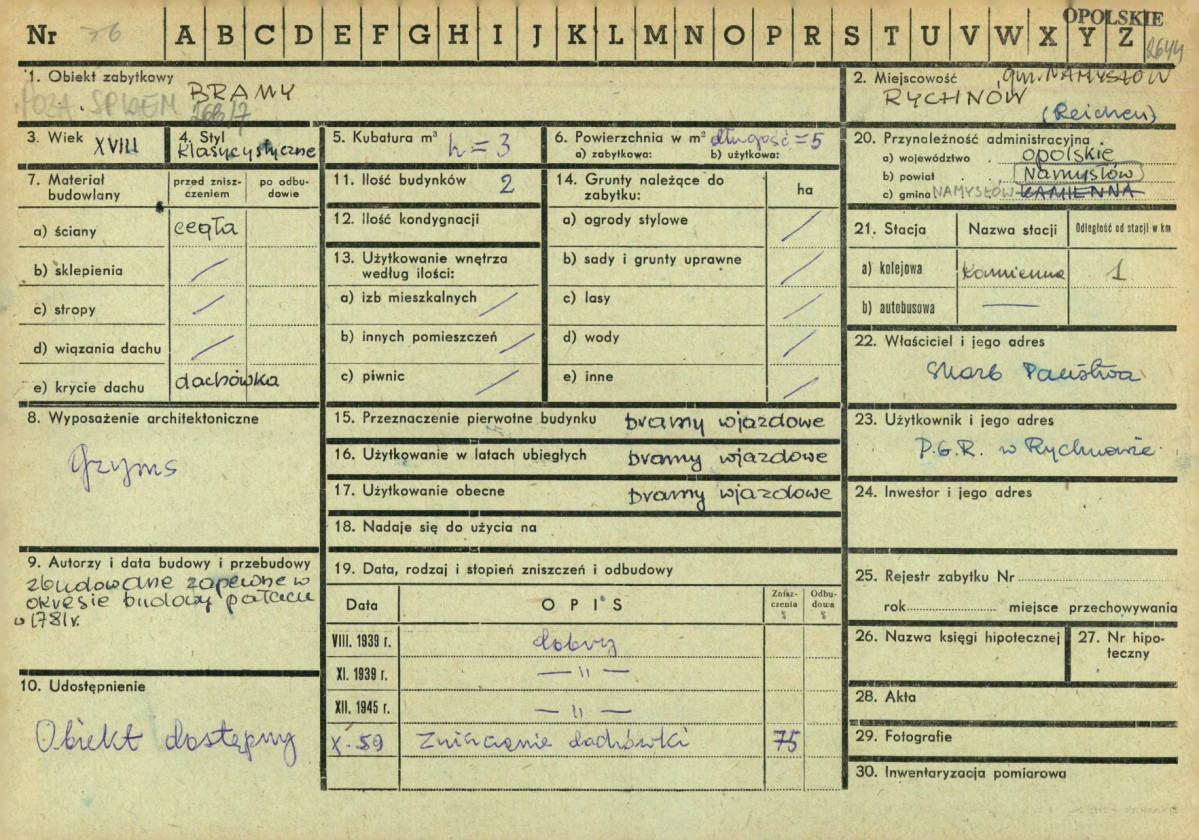 OPOLSKIE
Nr 76 A B C D E F G H I J K L M N O P R S T U V W X Y Z 2644
1. Obiekt zabytkowy
BRAMY
POZA SPISEM 768/7
2. Miejscowość gm. NAMYSŁÓW
RYCHNÓW
(Reichen)
3. Wiek XVIII
4. Styl
klasycystyczne
5. Kubatura m³ h = 3
6. Powierzchnia w m² długość = 5
a) zabytkowa: b) użytkowa:
7. Materiał budowlany
przed zniszczeniem
po odbudowie
a) ściany cegła
b) sklepienia /
c) stropy /
d) wiązania dachu /
e) krycie dachu dachówka
8. Wyposażenie architektoniczne
Gzyms
9. Autorzy i data budowy i przebudowy
zbudowane zapewne w
okresie budowy pałacu
w 1781 r.
10. Udostępnienie
Obiekt dostępny
11. Ilość budynków 2
12. Ilość kondygnacji
13. Użytkowanie wnętrza
według ilości:
a) izb mieszkalnych /
b) innych pomieszczeń /
c) piwnic /
14. Grunty należące do
zabytku: ha
a) ogrody stylowe /
b) sady i grunty uprawne /
c) lasy /
d) wody /
e) inne /
15. Przeznaczenie pierwotne budynku bramy wjazdowe
16. Użytkowanie w latach ubiegłych bramy wjazdowe
17. Użytkowanie obecne bramy wjazdowe
18. Nadaje się do użycia na
19. Data, rodzaj i stopień zniszczeń i odbudowy
Data OPIS Zniszczenia % Odbudowa %
VIII. 1939 r. dobry
XI. 1939 r. — „ —
XII. 1945 r. — „ —
X. 59 Zniszczenie dachówki 75
20. Przynależność administracyjna
a) województwo opolskie
b) powiat Namysłów
c) gmina NAMYSŁÓW KAMIENNA
21. Stacja Nazwa stacji Odległość od stacji w km
a) kolejowa Kamienna 1
b) autobusowa —
22. Właściciel i jego adres
Skarb Państwa
23. Użytkownik i jego adres
P.G.R. w Rychnowie
24. Inwestor i jego adres
25. Rejestr zabytku Nr
rok miejsce przechowywania
26. Nazwa księgi hipotecznej
27. Nr hipoteczny
28. Akta
29. Fotografie
30. Inwentaryzacja pomiarowa